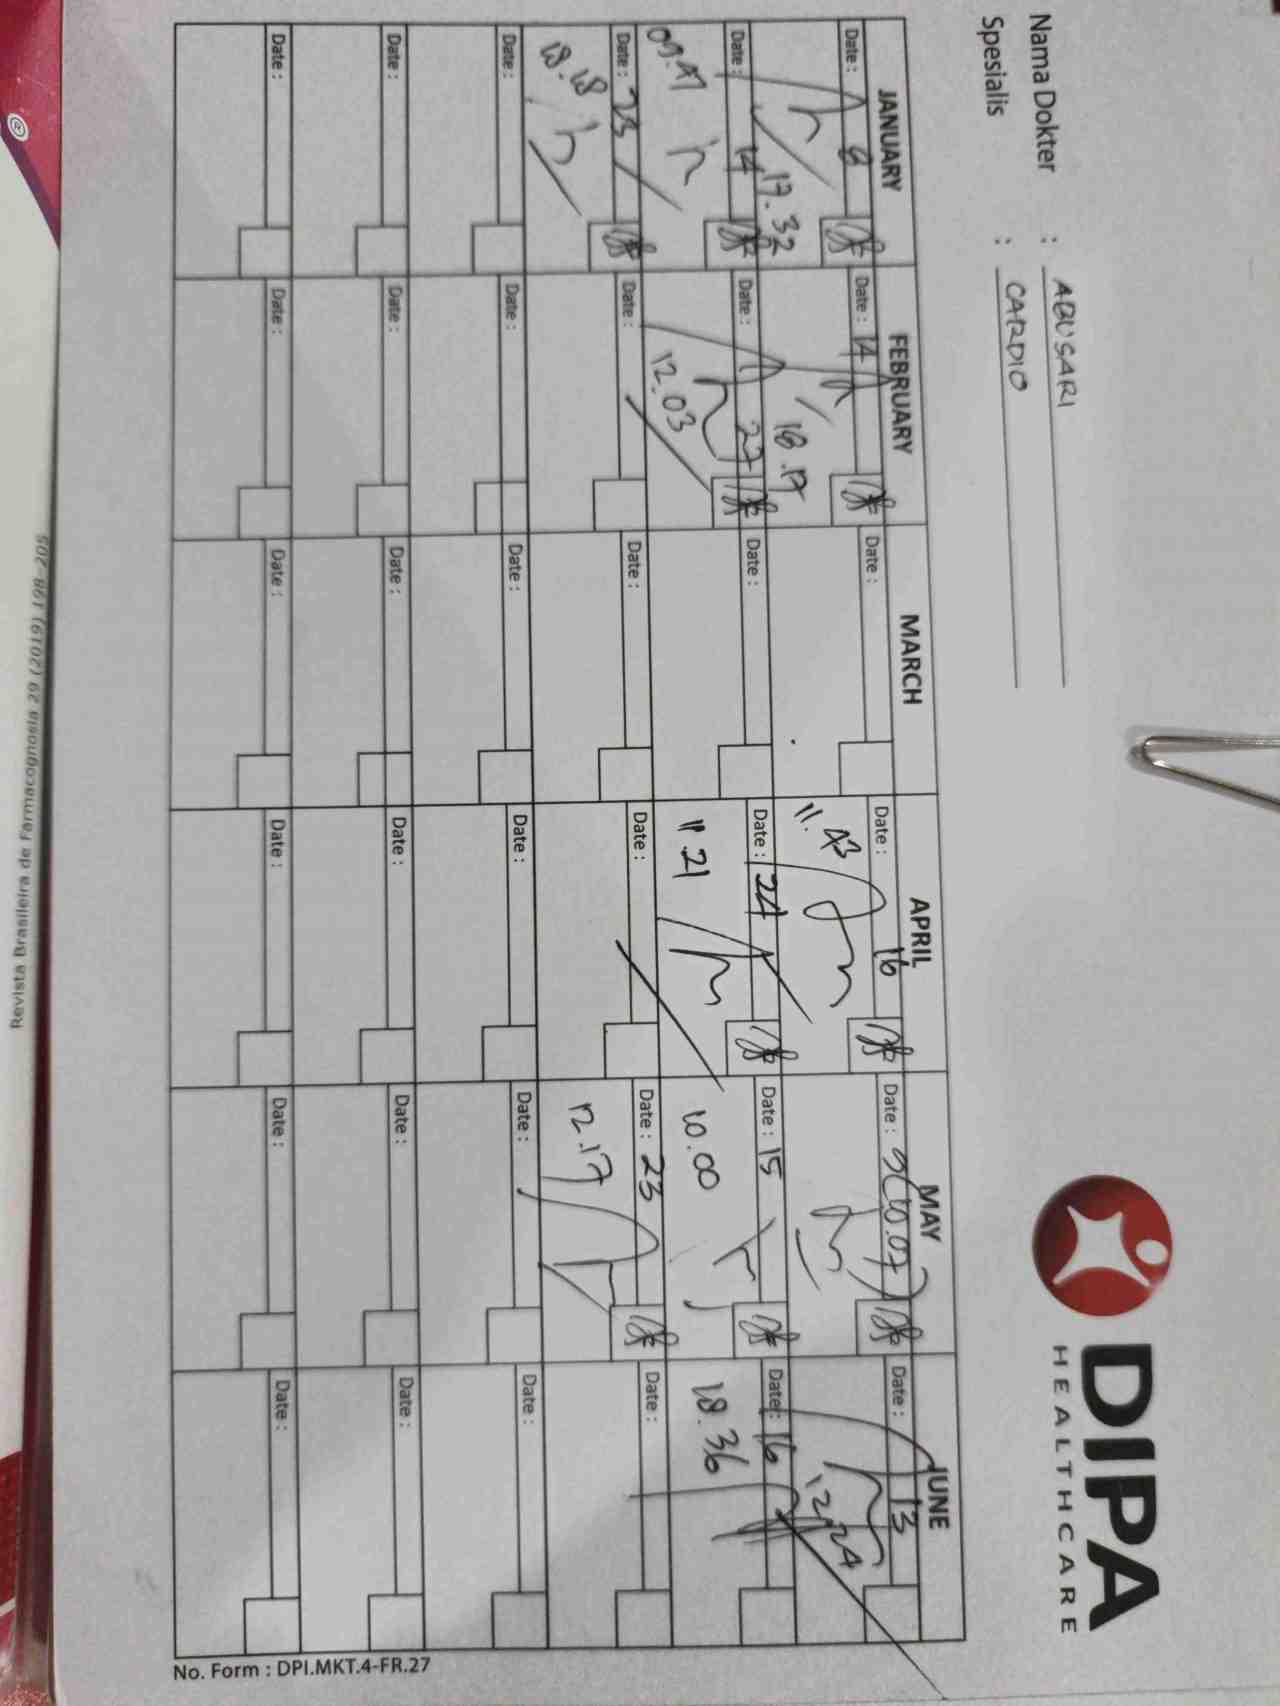 DIPA
HEALTHCARE
Nama Dokter : ABUSARI
Spesialis : CARDIO
JANUARY FEBRUARY MARCH APRIL MAY JUNE
Date : 8 Date : 14 Date : Date : 16 Date : 9 (10.07) Date : 13
17.32 18.17 11.43 12.24
Date : 14 Date : 27 Date : Date : 24 Date : 15 Date : 16
09.47 12.03 11.21 10.00 18.36
Date : 23 Date : Date : Date : Date : 23 Date :
18.18 12.17
Date : Date : Date : Date : Date : Date :
Date : Date : Date : Date : Date : Date :
Date : Date : Date : Date : Date : Date :
No. Form : DPI.MKT.4-FR.27
Revista Brasileira de Farmacognosia 29 (2019) 198-205